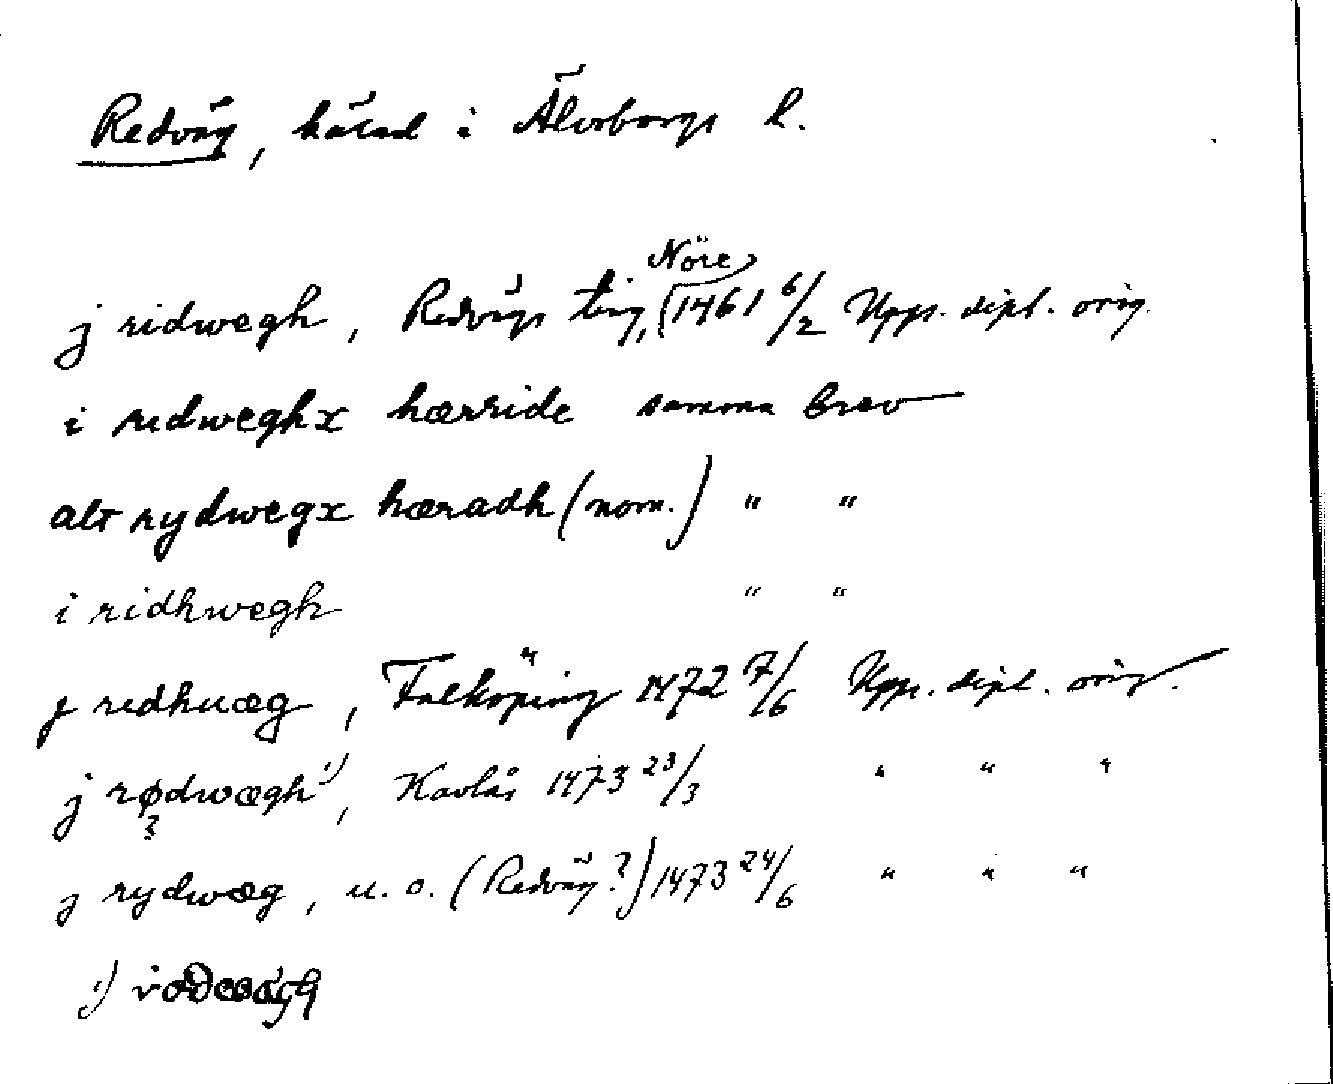 Redväg, härad i Älvsborgs l.
Nöre
j ridwegh, Redvägs ting, 1461 6/2 Upps. dipl. orig.
i redweghx hærride samma brev
alt rydwegx hæradh (nom.) " "
i ridhwegh " "
j redhuæg, Falköping 1472 7/6 Upps. dipl. orig.
j rødwægh 1), Kavlås 1473 23/3 " " "
?
j rydwæg, u. o. (Redväg?) 1473 24/6 " " "
1)